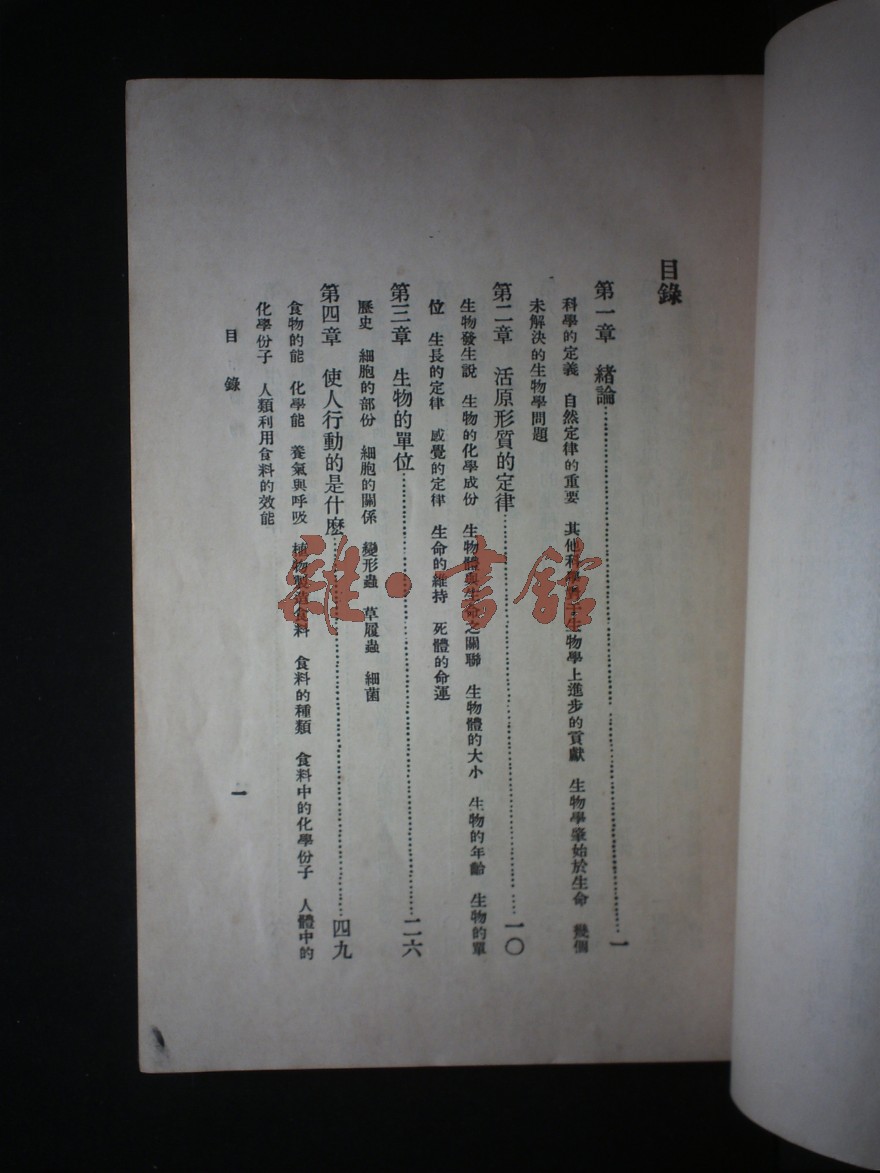 目錄
第一章　緒論……一
科學的定義　自然定律的重要　其他科學者于生物學上進步的貢獻　生物學肇始於生命　幾個
未解決的生物學問題
第二章　活原形質的定律……一〇
生物發生說　生物的化學成份　生物體與生命之關聯　生物體的大小　生物的年齡　生物的單
位　生長的定律　感覺的定律　生命的維持　死體的命運
第三章　生物的單位……二六
歷史　細胞的部份　細胞的關係　變形蟲　草履蟲　細菌
第四章　使人行動的是什麼……四九
食物的能　化學能　養氣與呼吸　植物製造食料　食料的種類　食料中的化學份子　人體中的
化學份子　人類利用食料的效能
目錄
一
雜·書館